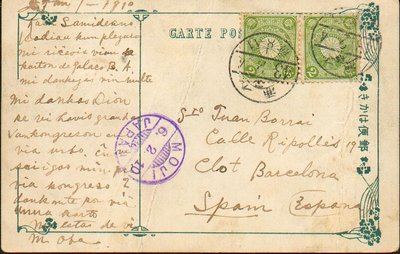 Jan 1 - 1910
Kara Samideano
Hodiaŭ kun plezuro
mi ricevis vian
karton de Palaco B. A.
mi dankegas vin multe
Mi dankas Dion
ke vi havis grandan
kongreson en
via urbo,
sciigos min pri
via kongreso?
dankante por via
unua karto
Mi estas de vi
M. Oba
CARTE POS
きかは便郵
MOJI
6. 2. 10
JAPAN
Sro Juan Borrai
Calle Ripollés 19
Clot Barcelona
Spain (Espana